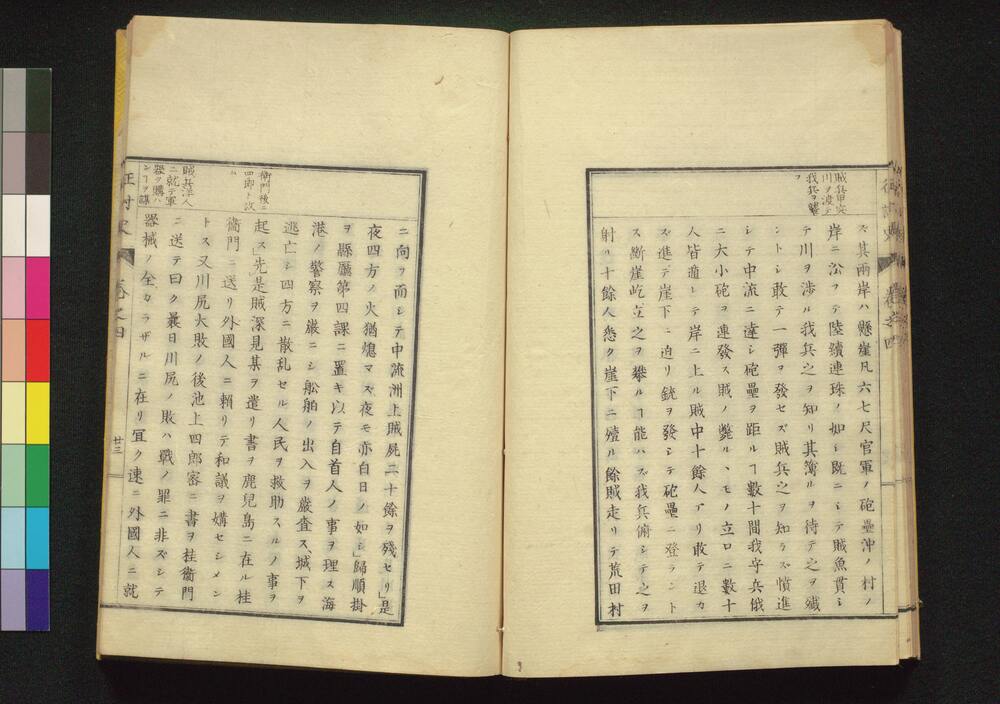 賊兵甲突
川ヲ渡テ
我兵ヲ襲
フ
ズ其兩岸ハ懸崖凡六七尺官軍ノ砲壘沖ノ村ノ
岸ニ沿フテ陸續連珠ノ如シ既ニシテ賊魚貫シ
テ川ヲ渉ル我兵之ヲ知リ其簿ルヲ待テ之ヲ殲
ントシ敢テ一彈ヲ發セズ賊兵之ヲ知ラズ憤進
シテ中流ニ達シ砲壘ヲ距ルヿ數十間我守兵俄
ニ大小砲ヲ連發ス賊ノ斃ルヽモノ立ロニ數十
人皆遁レテ岸ニ上ル賊中十餘人アリ敢テ退カ
ズ進デ崖下ニ迫リ銃ヲ發シテ砲壘ニ登ラント
ス斷崖屹立之ヲ攀ルヿ能ハズ我兵俯シテ之ヲ
射リ十餘人悉ク崖下ニ殪ル餘賊走リテ荒田村
ニ向フ而シテ中流洲上賊屍二十餘ヲ殘セリ」是
夜四方ノ火猶熄マズ夜モ亦白日ノ如シ」歸順掛
ヲ縣廳第四課ニ置キ以テ自首人ノ事ヲ理ス海
港ノ警察ヲ嚴ニシ舩舶ノ出入ヲ嚴査ス、城下ヲ
逃亡シ四方ニ散乱セル人民ヲ救助スルノ事ヲ
起ス」先是賊深見某ヲ遣リ書ヲ鹿兒島ニ在ル桂
衞門ニ送リ外國人ニ賴リテ和議ヲ媾セシメン
トス又川尻大敗ノ後池上四郎密ニ書ヲ桂衞門
ニ送テ曰ク曩日川尻ノ敗ハ戰ノ罪ニ非ズシテ
器械ノ全カラザルニ在リ冝ク速ニ外國人ニ就
衞門後ニ
四郎ト改
ム
賊兵洋人
ニ就テ軍
器ヲ購ハ
ンヿヲ謀
征討史
卷之四
廿三